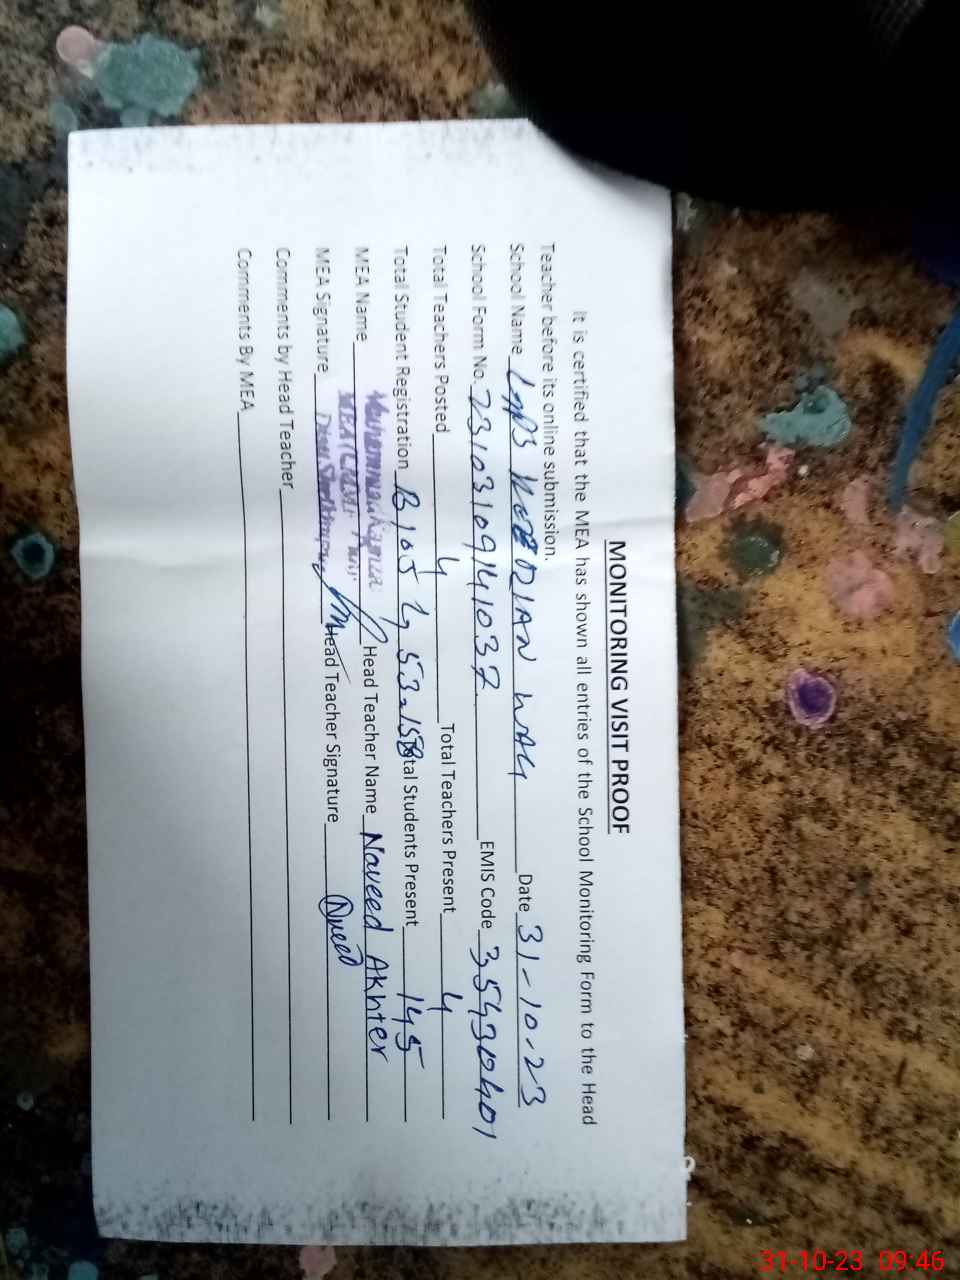 MONITORING VISIT PROOF
It is certified that the MEA has shown all entries of the School Monitoring Form to the Head
Teacher before its online submission.
School Name WALI Date 31-10-23
School Form No. 23103109141037 EMIS Code 35430401
Total Teachers Posted 4 Total Teachers Present 4
Total Student Registration B 105 G 53=158 Total Students Present 145
MEA Name Head Teacher Name Naveed Akhter
MEA Signature Head Teacher Signature
Comments by Head Teacher
Comments By MEA
31-10-23 09:46